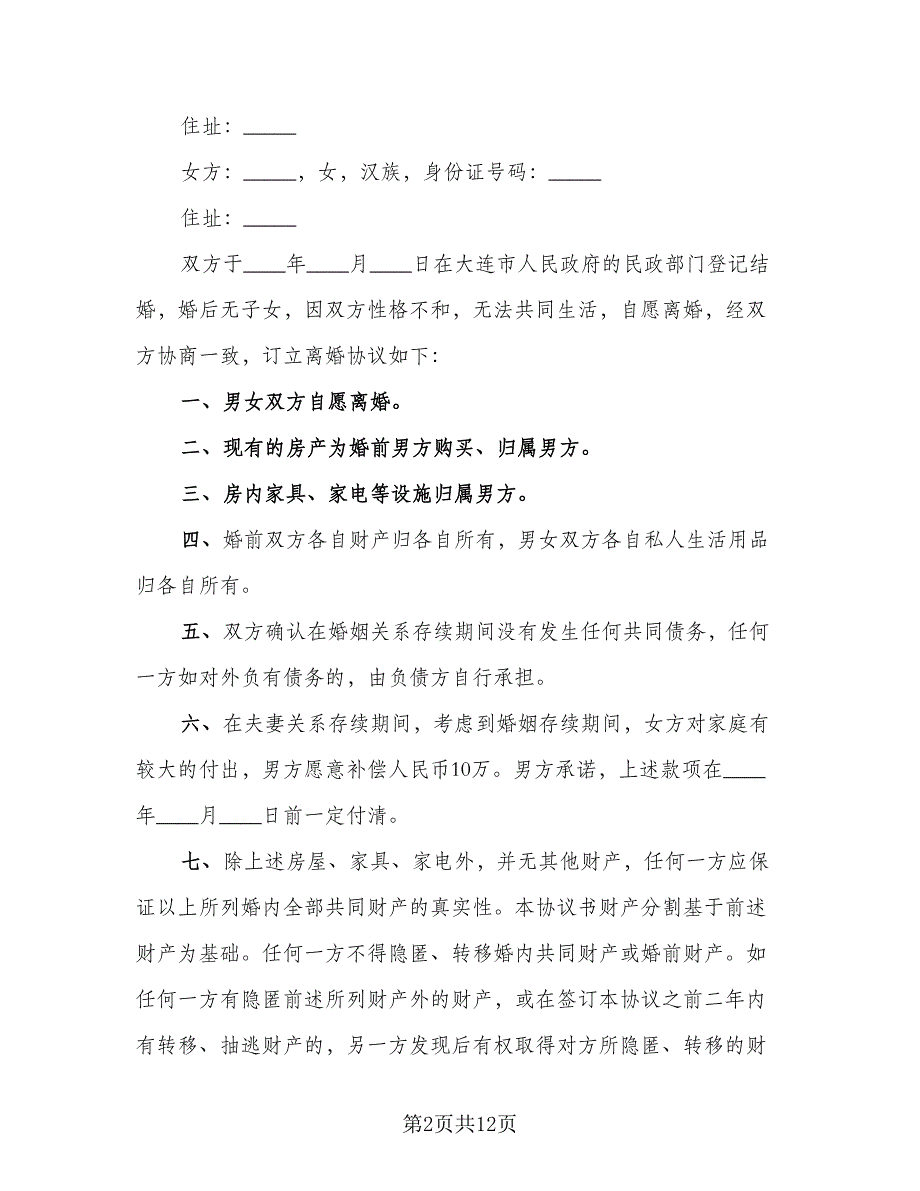 住址：_____
女方：_____，女，汉族，身份证号码：_____
住址：_____
双方于____年____月____日在大连市人民政府的民政部门登记结
婚，婚后无子女，因双方性格不和，无法共同生活，自愿离婚，经双
方协商一致，订立离婚协议如下：
一、男女双方自愿离婚。
二、现有的房产为婚前男方购买、归属男方。
三、房内家具、家电等设施归属男方。
四、婚前双方各自财产归各自所有，男女双方各自私人生活用品
归各自所有。
五、双方确认在婚姻关系存续期间没有发生任何共同债务，任何
一方如对外负有债务的，由负债方自行承担。
六、在夫妻关系存续期间，考虑到婚姻存续期间，女方对家庭有
较大的付出，男方愿意补偿人民币10万。男方承诺，上述款项在____
年____月____日前一定付清。
七、除上述房屋、家具、家电外，并无其他财产，任何一方应保
证以上所列婚内全部共同财产的真实性。本协议书财产分割基于前述
财产为基础。任何一方不得隐匿、转移婚内共同财产或婚前财产。如
任何一方有隐匿前述所列财产外的财产，或在签订本协议之前二年内
有转移、抽逃财产的，另一方发现后有权取得对方所隐匿、转移的财
第2页共12页